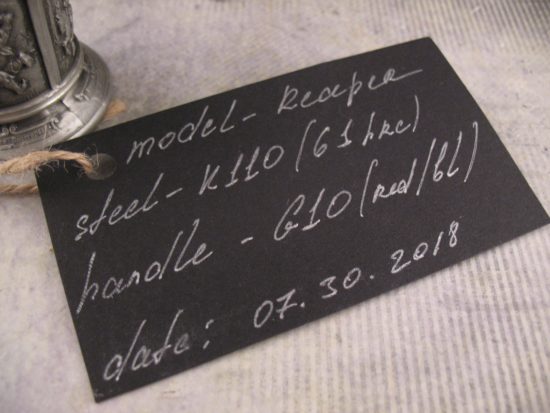 model - Reaper
steel - K110 (61 hrc)
handle - G10 (red/bl)
date: 07.30.2018